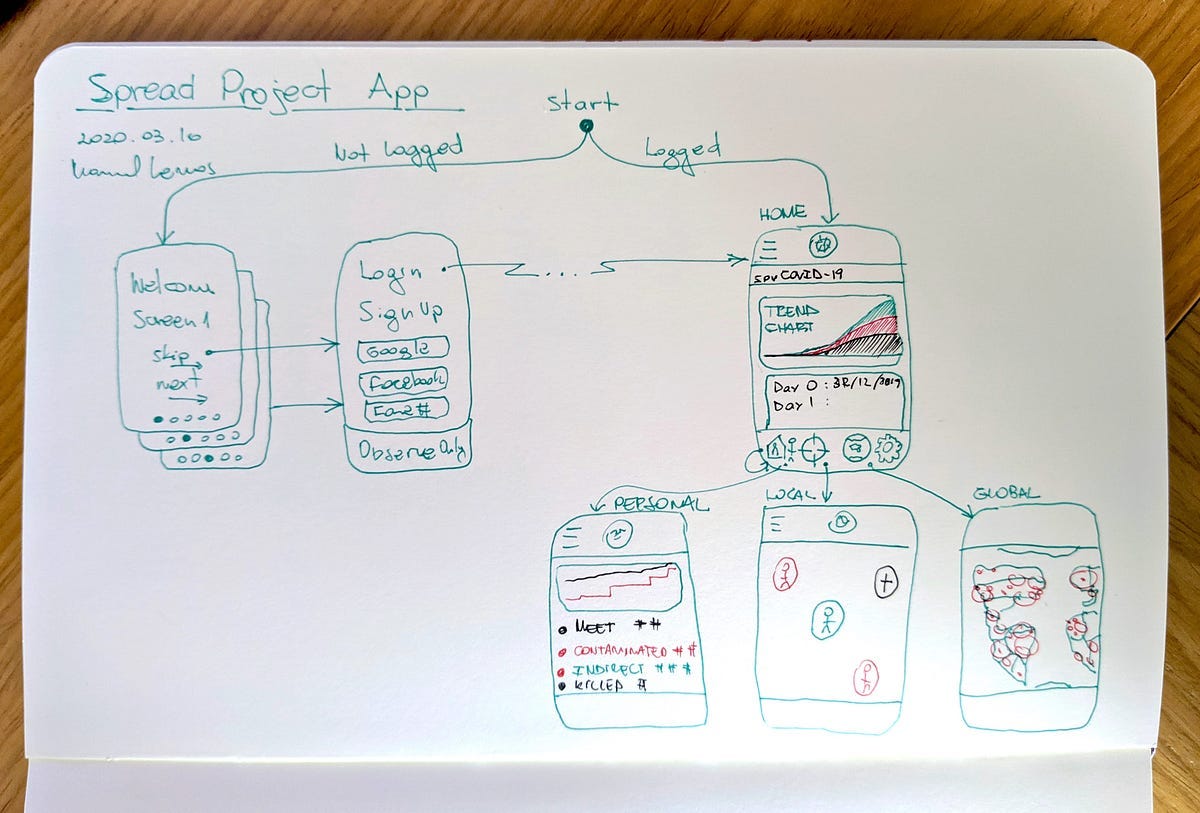 Spread Project App
2020.03.16
Start
Not Logged
Logged
Welcome
Screen 1
skip
next
Login
Sign Up
Google
Facebook
Observe Only
HOME
COVID-19
TREND
CHART
Day 0 :
Day 1 :
PERSONAL
MEET ##
CONTAMINATED ##
INDIRECT ###
KILLED #
LOCAL
GLOBAL